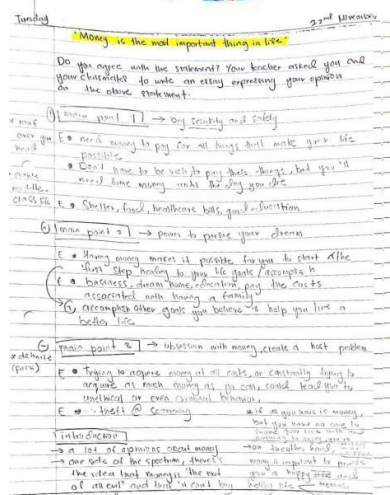 Tuesday 22nd November
"Money is the most important thing in life"
Do you agree with the statement? Your teacher asked you and
your classmates to write an essay expressing your opinion
on the above statement.
main point 1 → buy security and safety
a roof
over your
head
E • need money to pay for all things that make your life
possible
• Don't have to be rich to pay these things, but you'll
need some money until the day you die
middle
class life
E • Shelter, food, healthcare bills, good education
main point 2 → power to pursue your dreams
E • Having money makes it possible for you to start the
first step heading to your life goals / accomplish
E • business, dream home, education, pay the costs
associated with having a family
accomplish other goals you believe help you live a
better life
main point 3 → obsession with money, create a host problem
E • Trying to acquire money at all costs, or constantly trying to
acquire as much money as you can, could lead you to
unethical or even criminal behavior.
E • theft @ scamming
introduction
→ a lot of opinions about money
→ one side of the spectrum, there's
the idea that money is "the root
of all evil" and that "it can't buy
• if all you have is money,
but you have no one to
→ on the other hand,
money is important to provide
you a happy and